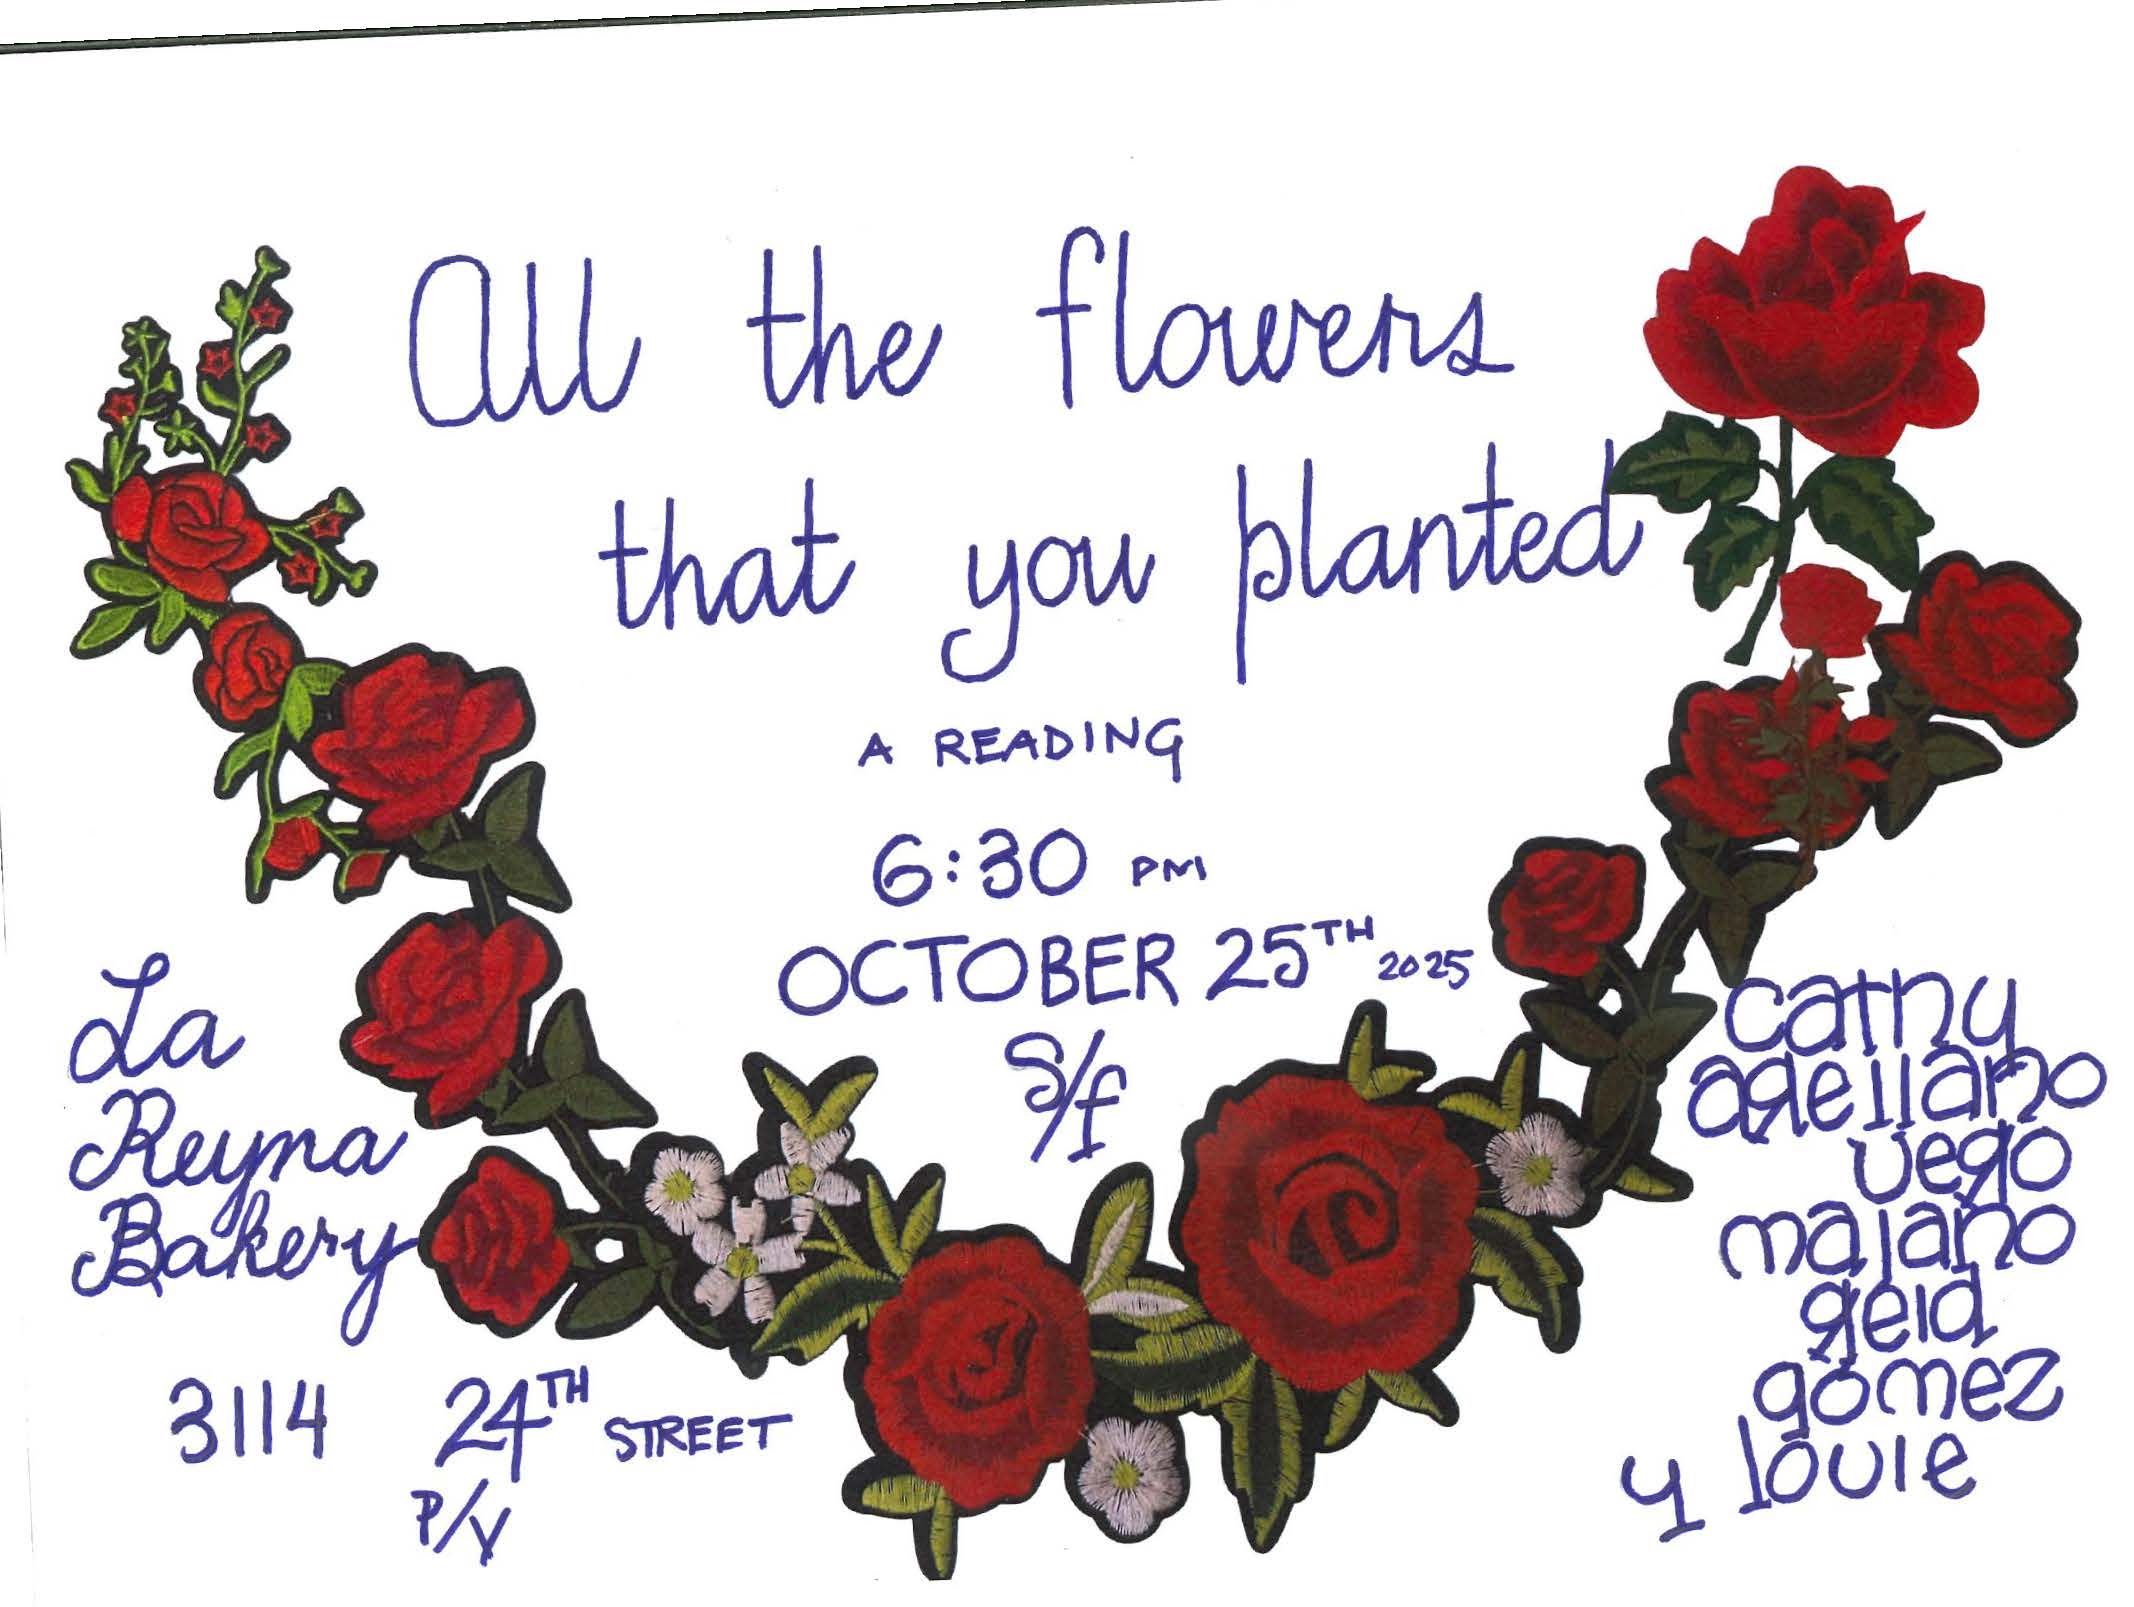 All the flowers
that you planted
A READING
6:30 PM
OCTOBER 25TH 2025
S/f
La
Reyna
Bakery
3114 24TH STREET
P/V
cathy
arellano
vero
majano
reid
gómez
y louie